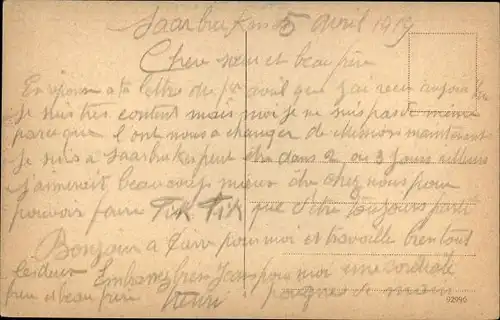 Saarbruk 5 avril 1919
Chere sœur et beau frère
En réponse a ta lettre du 1er avril que j'ai recu aujourd'hui
Je suis très content mais moi je ne suis pas de même
parceque l'ont nous a changer de division maintenant
Je suis a Saarbruk peut être dans 2 ou 3 Jours ailleurs
j'aimerait beaucoup mieux être chez nous pour
pouvoir faire Tik Tik que d'être toujours parti
Bonjour a Pierre pour moi et travaille bien tout
les deux Embrasse bien Jean pour moi une cordiale
frere et beau frère Henri poignée de main
92990